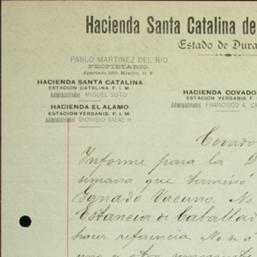 Hacienda Santa Catalina de
Estado de Dura
PABLO MARTINEZ DEL RIO
PROPIETARIO.
Apartado 250. México, D. F.
HACIENDA SANTA CATALINA
ESTACION CATALINA. F. I. M.
Administrador MIGUEL SOTO.
HACIENDA EL ALAMO
ESTACION YERBANIS. F. I. M.
Administrador DIONISIO SALAS H.
HACIENDA COVADO
ESTACION YERBANIS. F. I.
Administrador FRANCISCO A. C
Covado
Informe para la D
semana que terminó
Ganado Vacuno. No
Estancia di Caballad
hacer referencia. No se a
una y otra